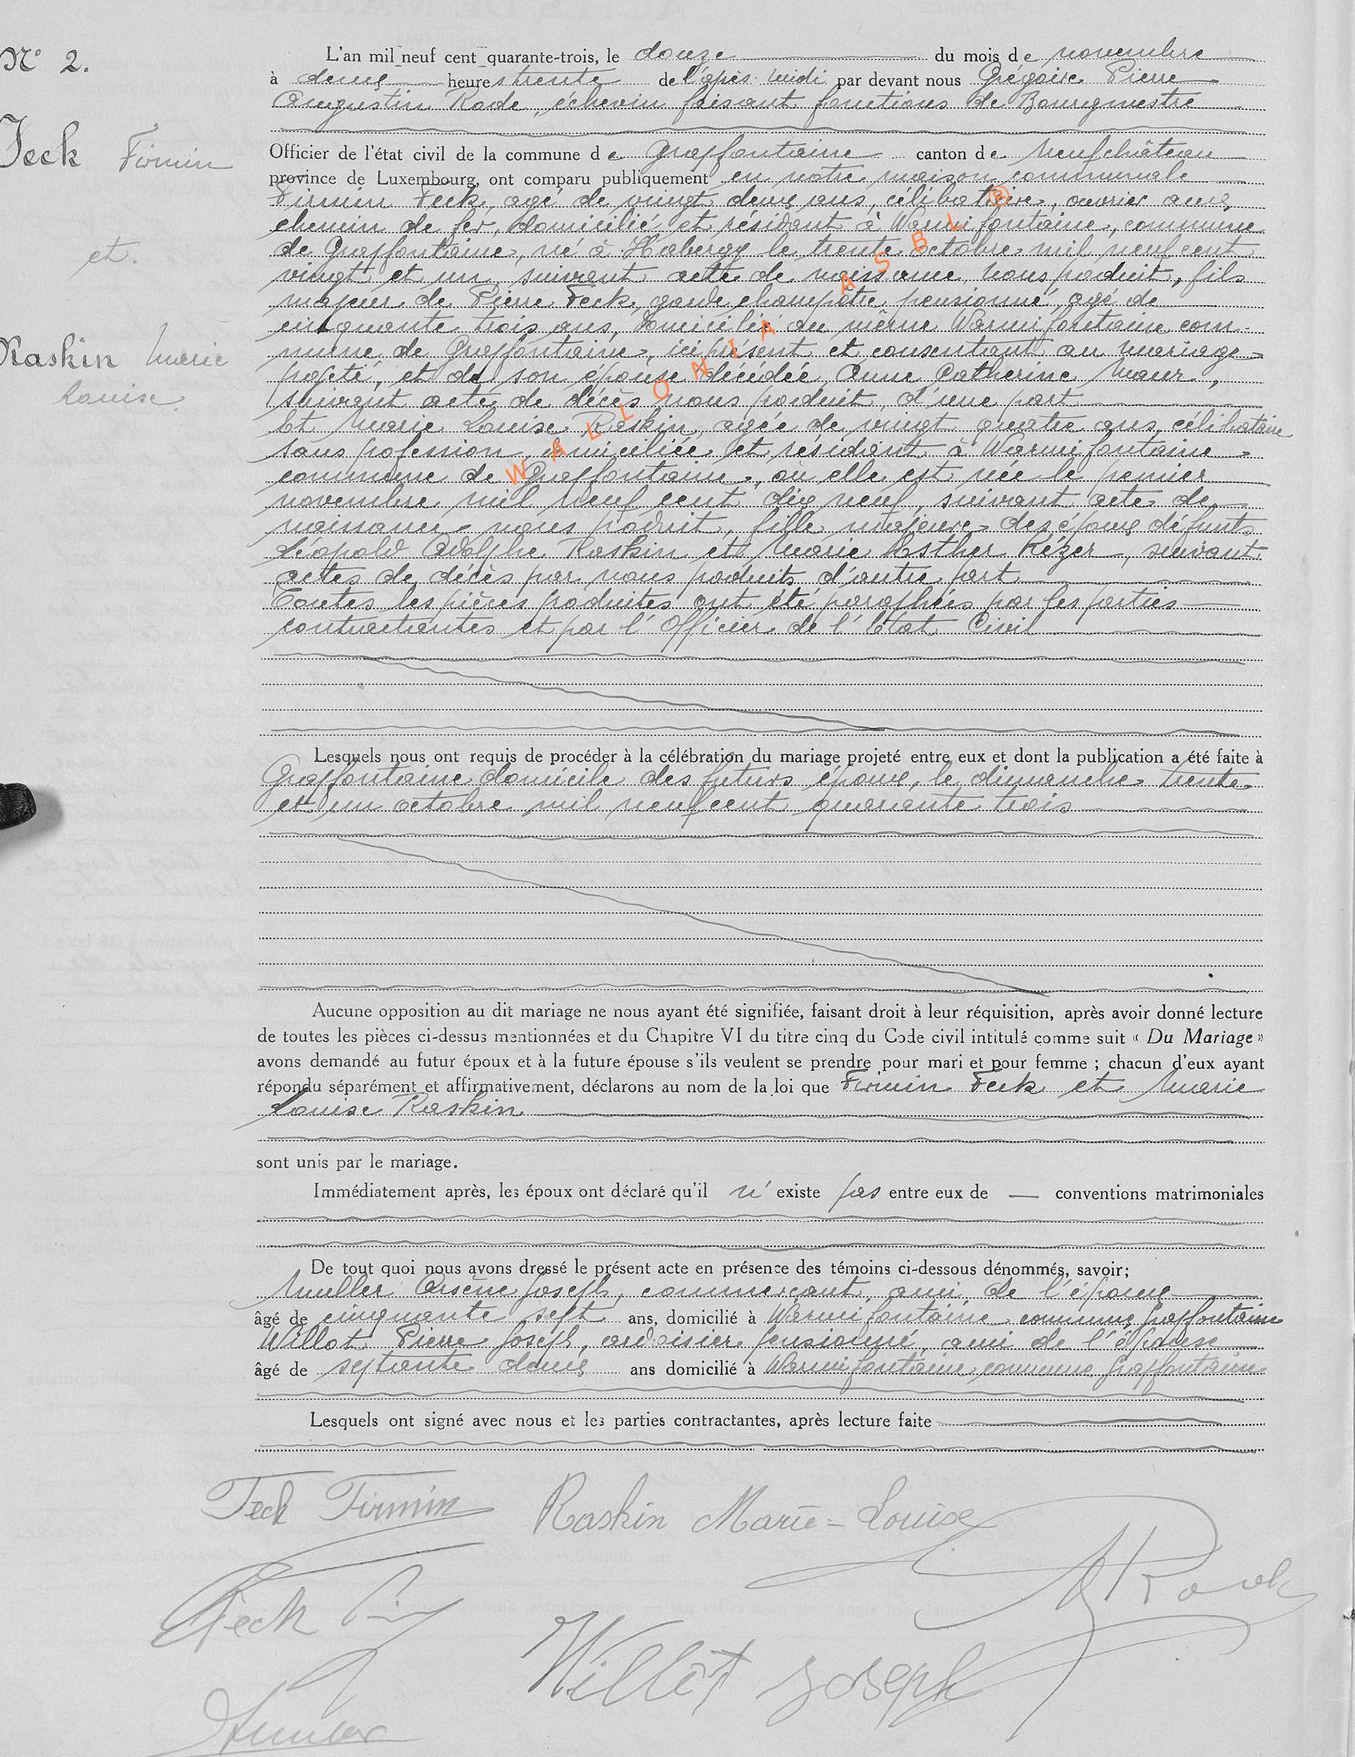 N° 2.
Feck Firmin
et
Raskin Marie
Louise
L'an mil neuf cent quarante-trois, le douze du mois de novembre
à deux heures trente de l'après-midi par devant nous Grégoire Pierre
Augustin Rode, échevin faisant fonctions de Bourgmestre
Officier de l'état civil de la commune de Grapfontaine canton de Neufchâteau
province de Luxembourg, ont comparu publiquement en notre maison communale
Firmin Feck, agé de vingt deux ans, célibataire, ouvrier aux
chemin de fer, domicilié et résidant à Warmifontaine, commune
de Grapfontaine, né à Habergy le trente octobre mil neuf cent
vingt et un, suivant acte de naissance nous produit, fils
majeur de Pierre Feck, garde champêtre pensionné, agé de
cinquante trois ans, domicilié au même Warmifontaine com-
mune de Grapfontaine, ici présent et consentant au mariage
projeté, et de son épouse décédée Anne Catherine
suivant acte de décès nous produit, d'une part
Et Marie Louise Raskin, agée de vingt quatre ans, célibataire
sans profession, domiciliée et résidant à Warmifontaine
commune de Grapfontaine, où elle est née le premier
novembre mil neuf cent dix neuf, suivant acte de
naissance nous produit, fille majeure des époux défunts
Léopold Adolphe Raskin et Marie Esther Kézer, suivant
actes de décès par nous produits d'autre part
Toutes les pièces produites ont été paraphées par les parties
contractantes et par l'Officier de l'Etat Civil
Lesquels nous ont requis de procéder à la célébration du mariage projeté entre eux et dont la publication a été faite à
Grapfontaine domicile des futurs époux, le dimanche trente
et un octobre mil neuf cent quarante trois
Aucune opposition au dit mariage ne nous ayant été signifiée, faisant droit à leur réquisition, après avoir donné lecture
de toutes les pièces ci-dessus mentionnées et du Chapitre VI du titre cinq du Code civil intitulé comme suit « Du Mariage »
avons demandé au futur époux et à la future épouse s'ils veulent se prendre pour mari et pour femme ; chacun d'eux ayant
répondu séparément et affirmativement, déclarons au nom de la loi que Firmin Feck et Marie
Louise Raskin
sont unis par le mariage.
Immédiatement après, les époux ont déclaré qu'il n'existe pas entre eux de — conventions matrimoniales
De tout quoi nous avons dressé le présent acte en présence des témoins ci-dessous dénommés, savoir;
Muller Arsène Joseph, commerçant, ami de l'époux
âgé de cinquante sept ans, domicilié à Warmifontaine commune Grapfontaine
Willot Pierre Joseph, ardoisier pensionné, ami de l'épouse
âgé de septante deux ans domicilié à Warmifontaine commune Grapfontaine
Lesquels ont signé avec nous et les parties contractantes, après lecture faite
Feck Firmin Raskin Marie-Louise
Feck
Willot Joseph
WALLONIA ASBL ®